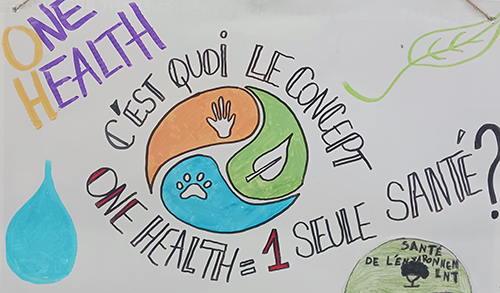 ONE
HEALTH
C'EST QUOI LE CONCEPT
ONE HEALTH = 1 SEULE SANTÉ ?
SANTÉ
DE L'ENVIRONNEM
ENT